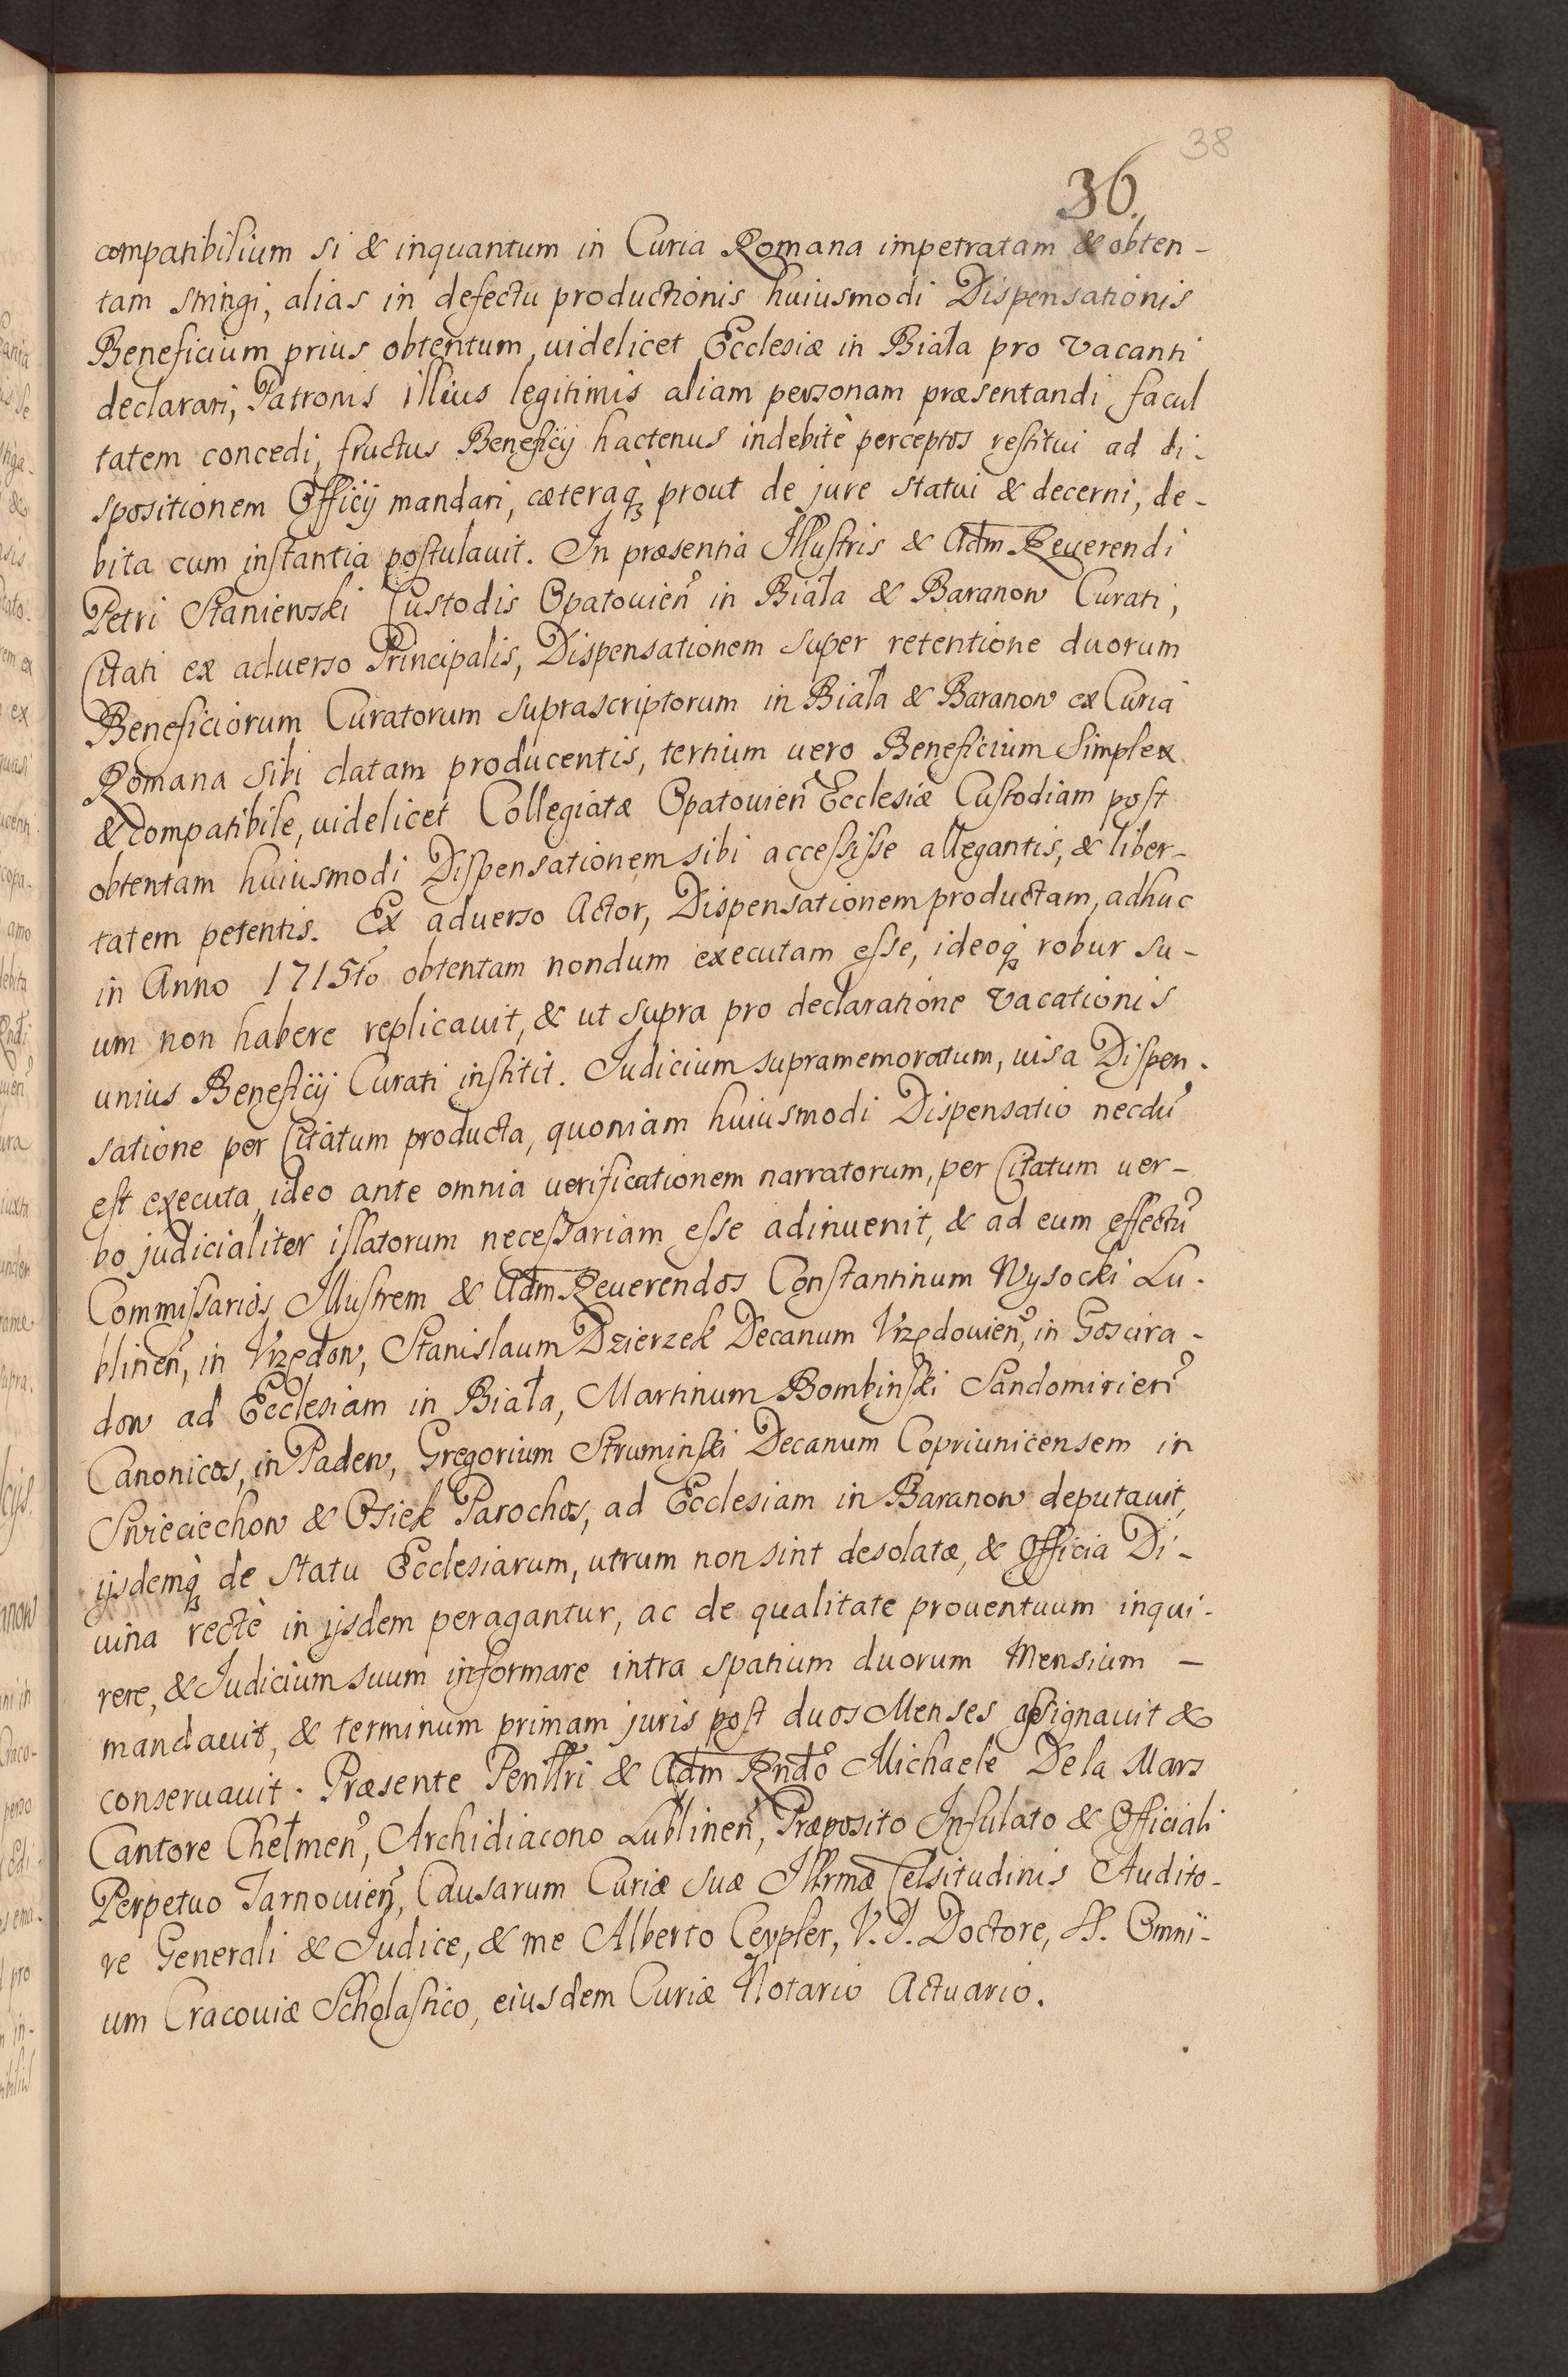 38
36.
compatibilium si & inquantum in Curia Romana impetratam & obten-
tam stringi, alias in defectu productionis huiusmodi Dispensationis
Beneficium prius obtentum, uidelicet Ecclesiæ in Biała pro vacanti
declarari, Patronis illius legitimis aliam personam præsentandi facul
tatem concedi, fructus Beneficij hactenus indebitè perceptos restitui ad di-
spositionem Officij mandari, cæteraq́ꝫ prout de jure statui & decerni, de-
bita cum instantia postulauit. In præsentia Illustris & Adm Reuerendi
Petri Staniewski Custodis Opatouien̉ in Biała & Baranow Curati,
Citati ex aduerso Principalis, Dispensationem super retentione duorum
Beneficiorum Curatorum suprascriptorum in Biała & Baranow ex Curia
Romana sibi datam producentis, tertium uero Beneficium Simplex
& compatibile, uidelicet Collegiatæ Opatouien̉ Ecclesiæ Custodiam post
obtentam huiusmodi Dispensationem sibi accessisse allegantis, & liber-
tatem petentis. Ex aduerso Actor, Dispensationem productam, adhuc
in Anno 1715to obtentam nondum executam esse, ideoq́ꝫ robur su-
um non habere replicauit, & ut supra pro declaratione vacationis
unius Beneficij Curati institit. Judicium supramemoratum, uisa Dispen-
satione per Citatum producta, quoniam huiusmodi Dispensatio necdủ
est executa, ideo ante omnia uerificationem narratorum, per Citatum uer-
bo judicialiter illatorum necessariam esse adinuenit, & ad eum effectủ
Commissarios Illustrem & Adm Reuerendos Constantinum Wysocki Lu-
blinen̉, in Vrzędow, Stanislaum Dzierzek Decanum Vrzędouien̉, in Goscira-
dow ad Ecclesiam in Biała, Martinum Bombinski Sandomirien̉
Canonicos, in Padew, Gregorium Struminski Decanum Copriunicensem in
Swieciechow & Osiek Parochos, ad Ecclesiam in Baranow deputauit,
ijsdemq́ꝫ de statu Ecclesiarum, utrum non sint desolatæ, & Officia Di-
uina rectè in ijsdem peragantur, ac de qualitate prouentuum inqui-
rere, & Judicium suum informare intra spatium duorum Mensium –
mandauit, & terminum primam juris post duos Menses assignauit &
conseruauit. Præsente Penllri & Adm Rndo Michaele De la Mars
Cantore Chełmen̉, Archidiacono Lublinen̉, Præposito Infulato & Officiali
Perpetuo Tarnouien̉, Causarum Curiæ suæ Illrmæ Celsitudinis Audito-
re Generali & Judice, & me Alberto Ceypler, V. J. Doctore, SS. Omni-
um Cracouiæ Scholastico, eiusdem Curiæ Notario Actuario.